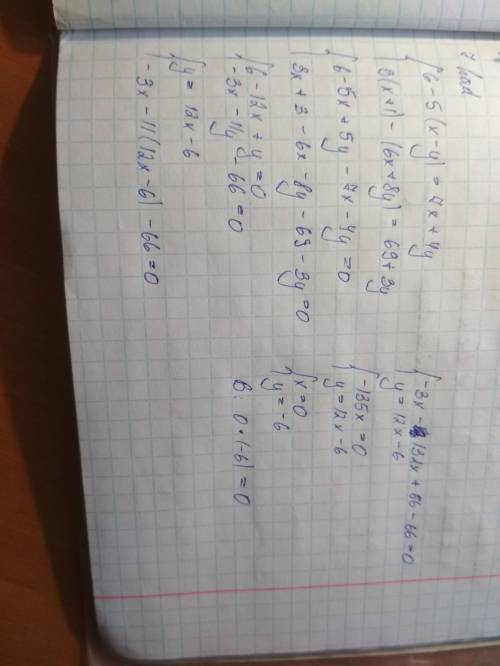 7 kad
{6 - 5(x-y) = 7x + 4y
{3(x+1) - (6x+8y) = 69+3y
{6 - 5x + 5y - 7x - 4y = 0
{3x + 3 - 6x - 8y - 69 - 3y = 0
{6 - 12x + y = 0
{-3x - 11y - 66 = 0
{y = 12x - 6
{-3x - 11(12x - 6) - 66 = 0
{-3x - 132x + 66 - 66 = 0
{y = 12x - 6
{-135x = 0
{y = 12x - 6
{x = 0
{y = -6
B: 0 · (-6) = 0